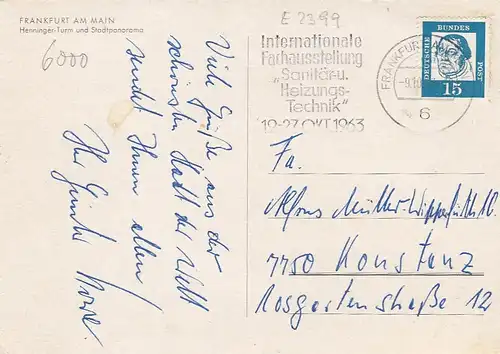 FRANKFURT AM MAIN
Henninger-Turm und Stadtpanorama
6000
E 2399
Internationale
Fachausstellung
„Sanitär-u.
Heizungs-
Technik“
19-27.OKT.1963
FRANKFURT
6
DEUTSCHE BUNDES POST
15
Viele Grüße aus der
schönsten Stadt der Welt
sendet Ihnen allen
Ihr Günter
Fa.
Alfons Müller-Wipperfürth
7750 Konstanz
Rosgartenstraße 12